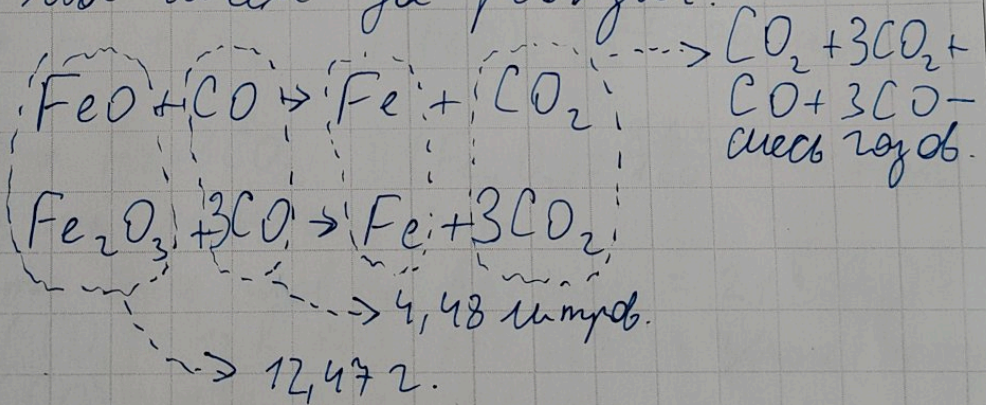 FeO + CO → Fe + CO₂
Fe₂O₃ + 3CO → Fe + 3CO₂
CO₂ + 3CO₂ +
CO + 3CO –
смесь газов.
4,48 литров.
12,47 г.